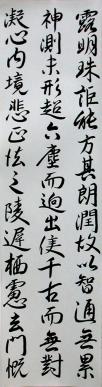 露明珠詎能方其朗潤故以智通無累
神測未形超六塵而迥出隻千古而無對
凝心内境悲正法之陵遲栖慮玄門慨